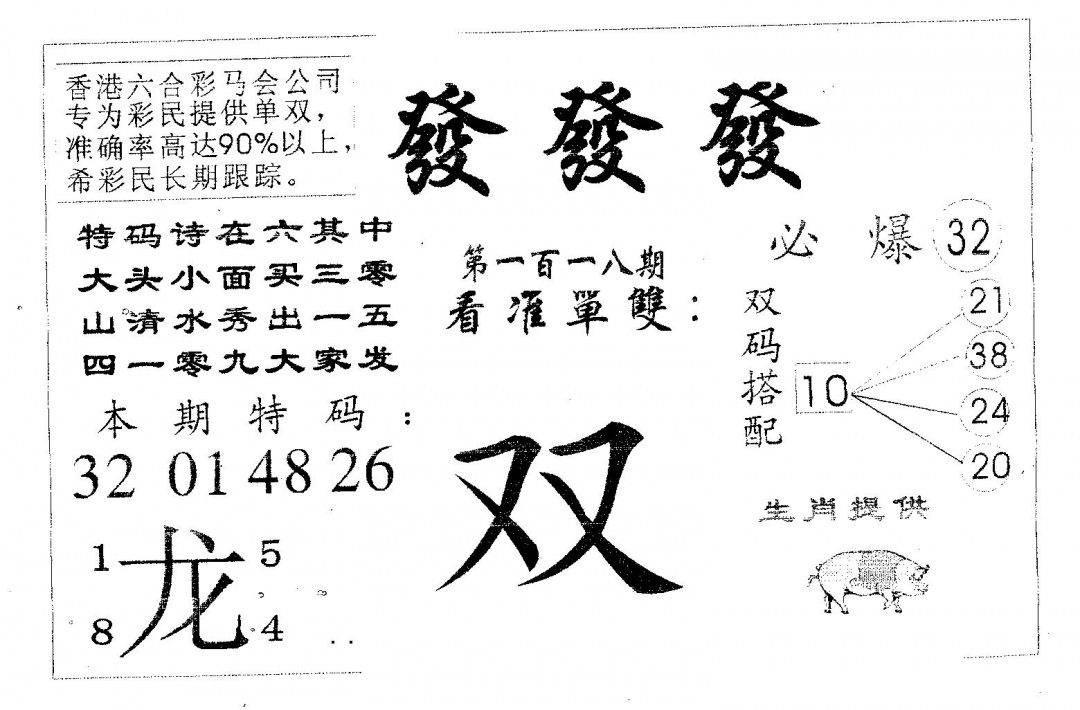 香港六合彩马会公司
专为彩民提供单双，
准确率高达90%以上，
希彩民长期跟踪。
發發發
特码诗在六其中
大头小面买三零
山清水秀出一五
四一零九大家发
本期特码：
32 01 48 26
1 龙 5
8 4
第一百一八期
看准單雙：
双
必爆 32
双码搭配
10
21
38
24
20
生肖提供